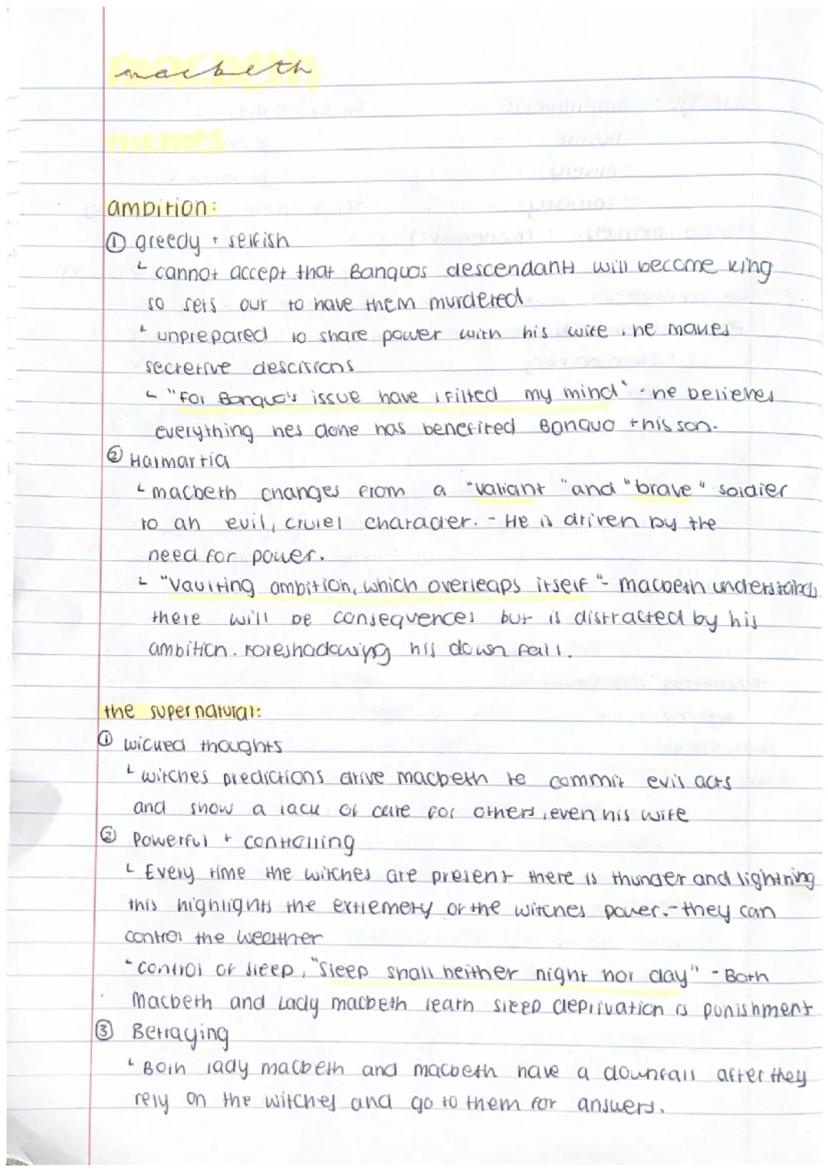 macbeth
themes
ambition:
① greedy + selfish
↳ cannot accept that Banquos descendants will become king
so sets out to have them murdered
↳ unprepared to share power with his wife, he makes
secretive descitions
↳ "For Banquo's issue have i filted my mind" - he believes
everything hes done has benefited Banquo + his son.
② Harmartia
↳ macbeth changes from a "valiant" and "brave" soldier
to an evil, cruel character. - He is driven by the
need for power.
↳ "Vaulting ambition, which overleaps itself" - macbeth understands
there will be consequences but is distracted by his
ambition. Foreshadowing his down fall.
the supernatural:
① wicked thoughts
↳ witches predictions drive macbeth to commit evil acts
and show a lack of care for others, even his wife
② Powerful + controlling
↳ Every time the witches are present there is thunder and lightning
this highlights the extremety of the witches power. - they can
control the weather
↳ control of sleep, "sleep shall neither night nor day" - Both
Macbeth and Lady macbeth learn sleep deprivation is punishment
③ Betraying
↳ Both lady macbeth and macbeth have a downfall after they
rely on the witches and go to them for answers.